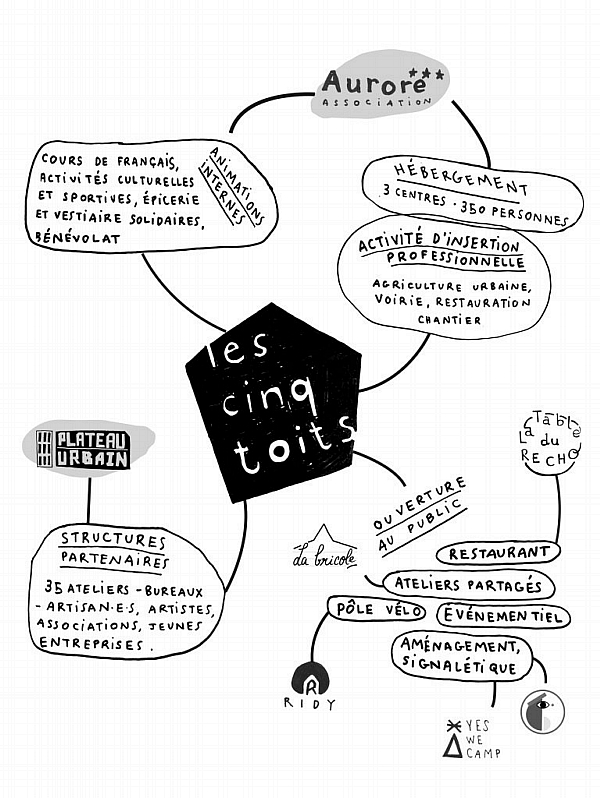 Aurore
ASSOCIATION
COURS DE FRANÇAIS,
ACTIVITÉS CULTURELLES
ET SPORTIVES, ÉPICERIE
ET VESTIAIRE SOLIDAIRES,
BÉNÉVOLAT
ANIMATIONS
INTERNES
HÉBERGEMENT
3 CENTRES · 350 PERSONNES
ACTIVITÉ D'INSERTION
PROFESSIONNELLE
AGRICULTURE URBAINE,
VOIRIE, RESTAURATION
CHANTIER
les
cinq
toits
PLATEAU
URBAIN
STRUCTURES
PARTENAIRES
35 ATELIERS - BUREAUX
- ARTISAN·E·S, ARTISTES,
ASSOCIATIONS, JEUNES
ENTREPRISES.
OUVERTURE
AU PUBLIC
La Table
du
RECHO
La bricole
RESTAURANT
ATELIERS PARTAGÉS
PÔLE VÉLO
ÉVÉNEMENTIEL
AMÉNAGEMENT,
SIGNALÉTIQUE
R
RIDY
YES
WE
CAMP